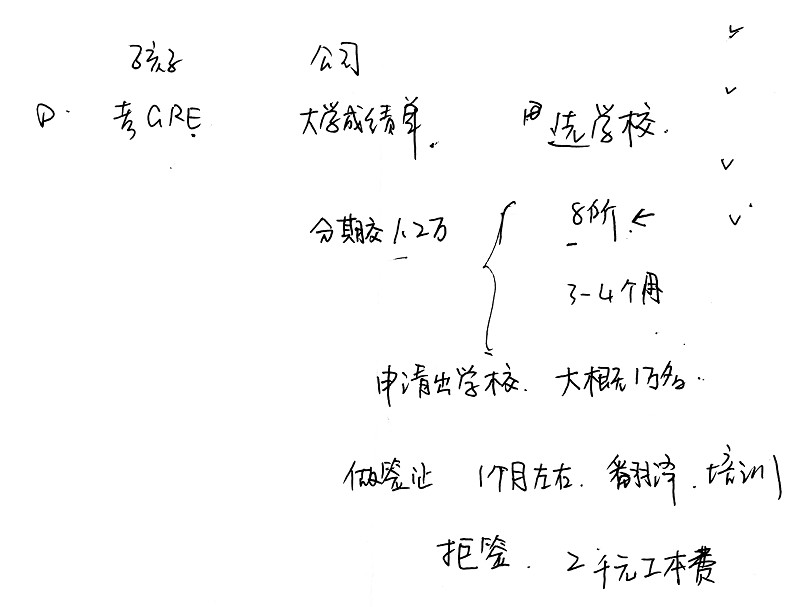 孩子 公司
考GRE 大学成绩单. 选学校.
分期交1.2万 8价 ←
3-4个月
申请出学校. 大概1万多.
做签证 1个月左右. 翻译. 培训
拒签. 2千元工本费